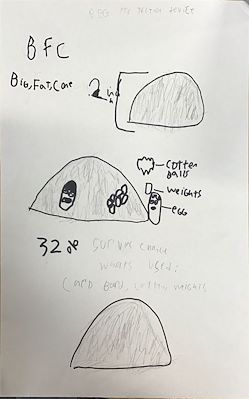 EGG Protection DEVICE
BFC
Big, Fat, Cone
2 ind
Cotten
Balls
weights
egg
32%
Survive chance
whats used:
Card Board, cotten weights